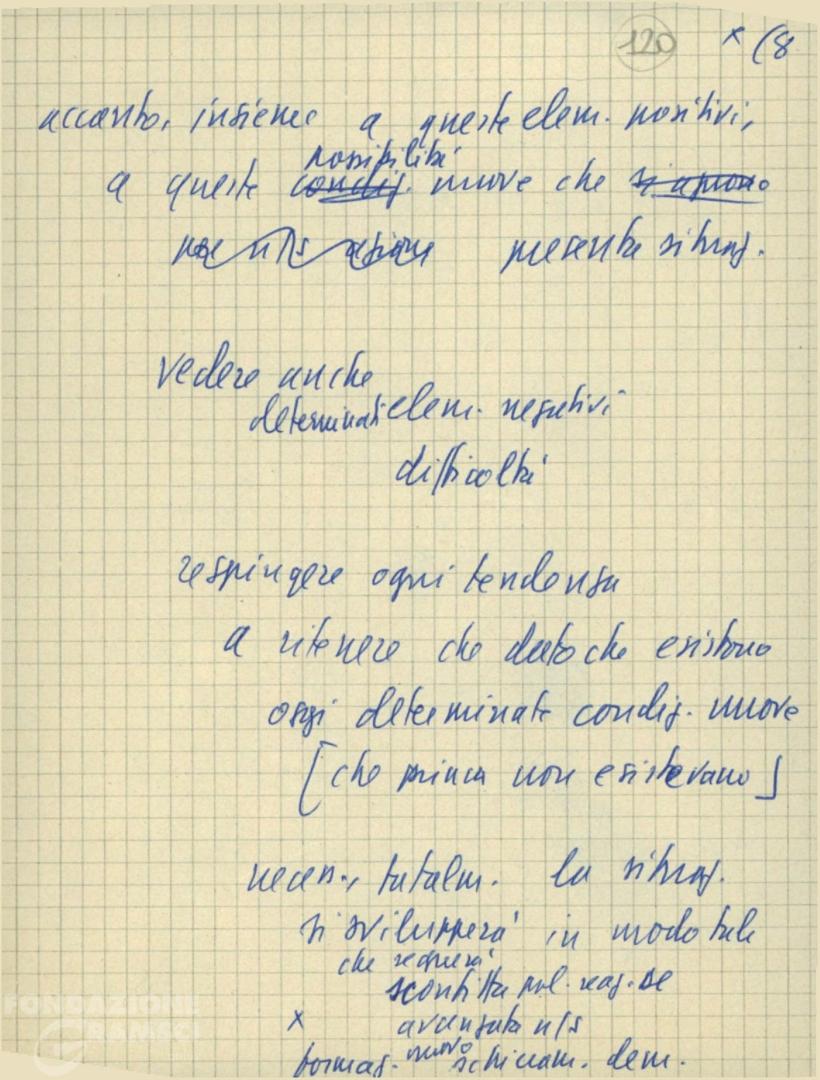 120 × (8
accanto, insieme a queste elem. positivi,
possibilità
a queste condiz. nuove che si aprono
per n/s azione presente situaz.
vedere anche
determinati elem. negativi
difficoltà
respingere ogni tendenza
a ritenere che dato che esistono
oggi determinate condiz. nuove
[che prima non esistevano]
necess., fatalm. la situaz.
si svilupperà in modo tale
che segnerà
sconfitta pol. reaz. DC
× avanzata n/s
formaz. nuovo schieram. dem.
FONDAZIONE
GRAMSCI